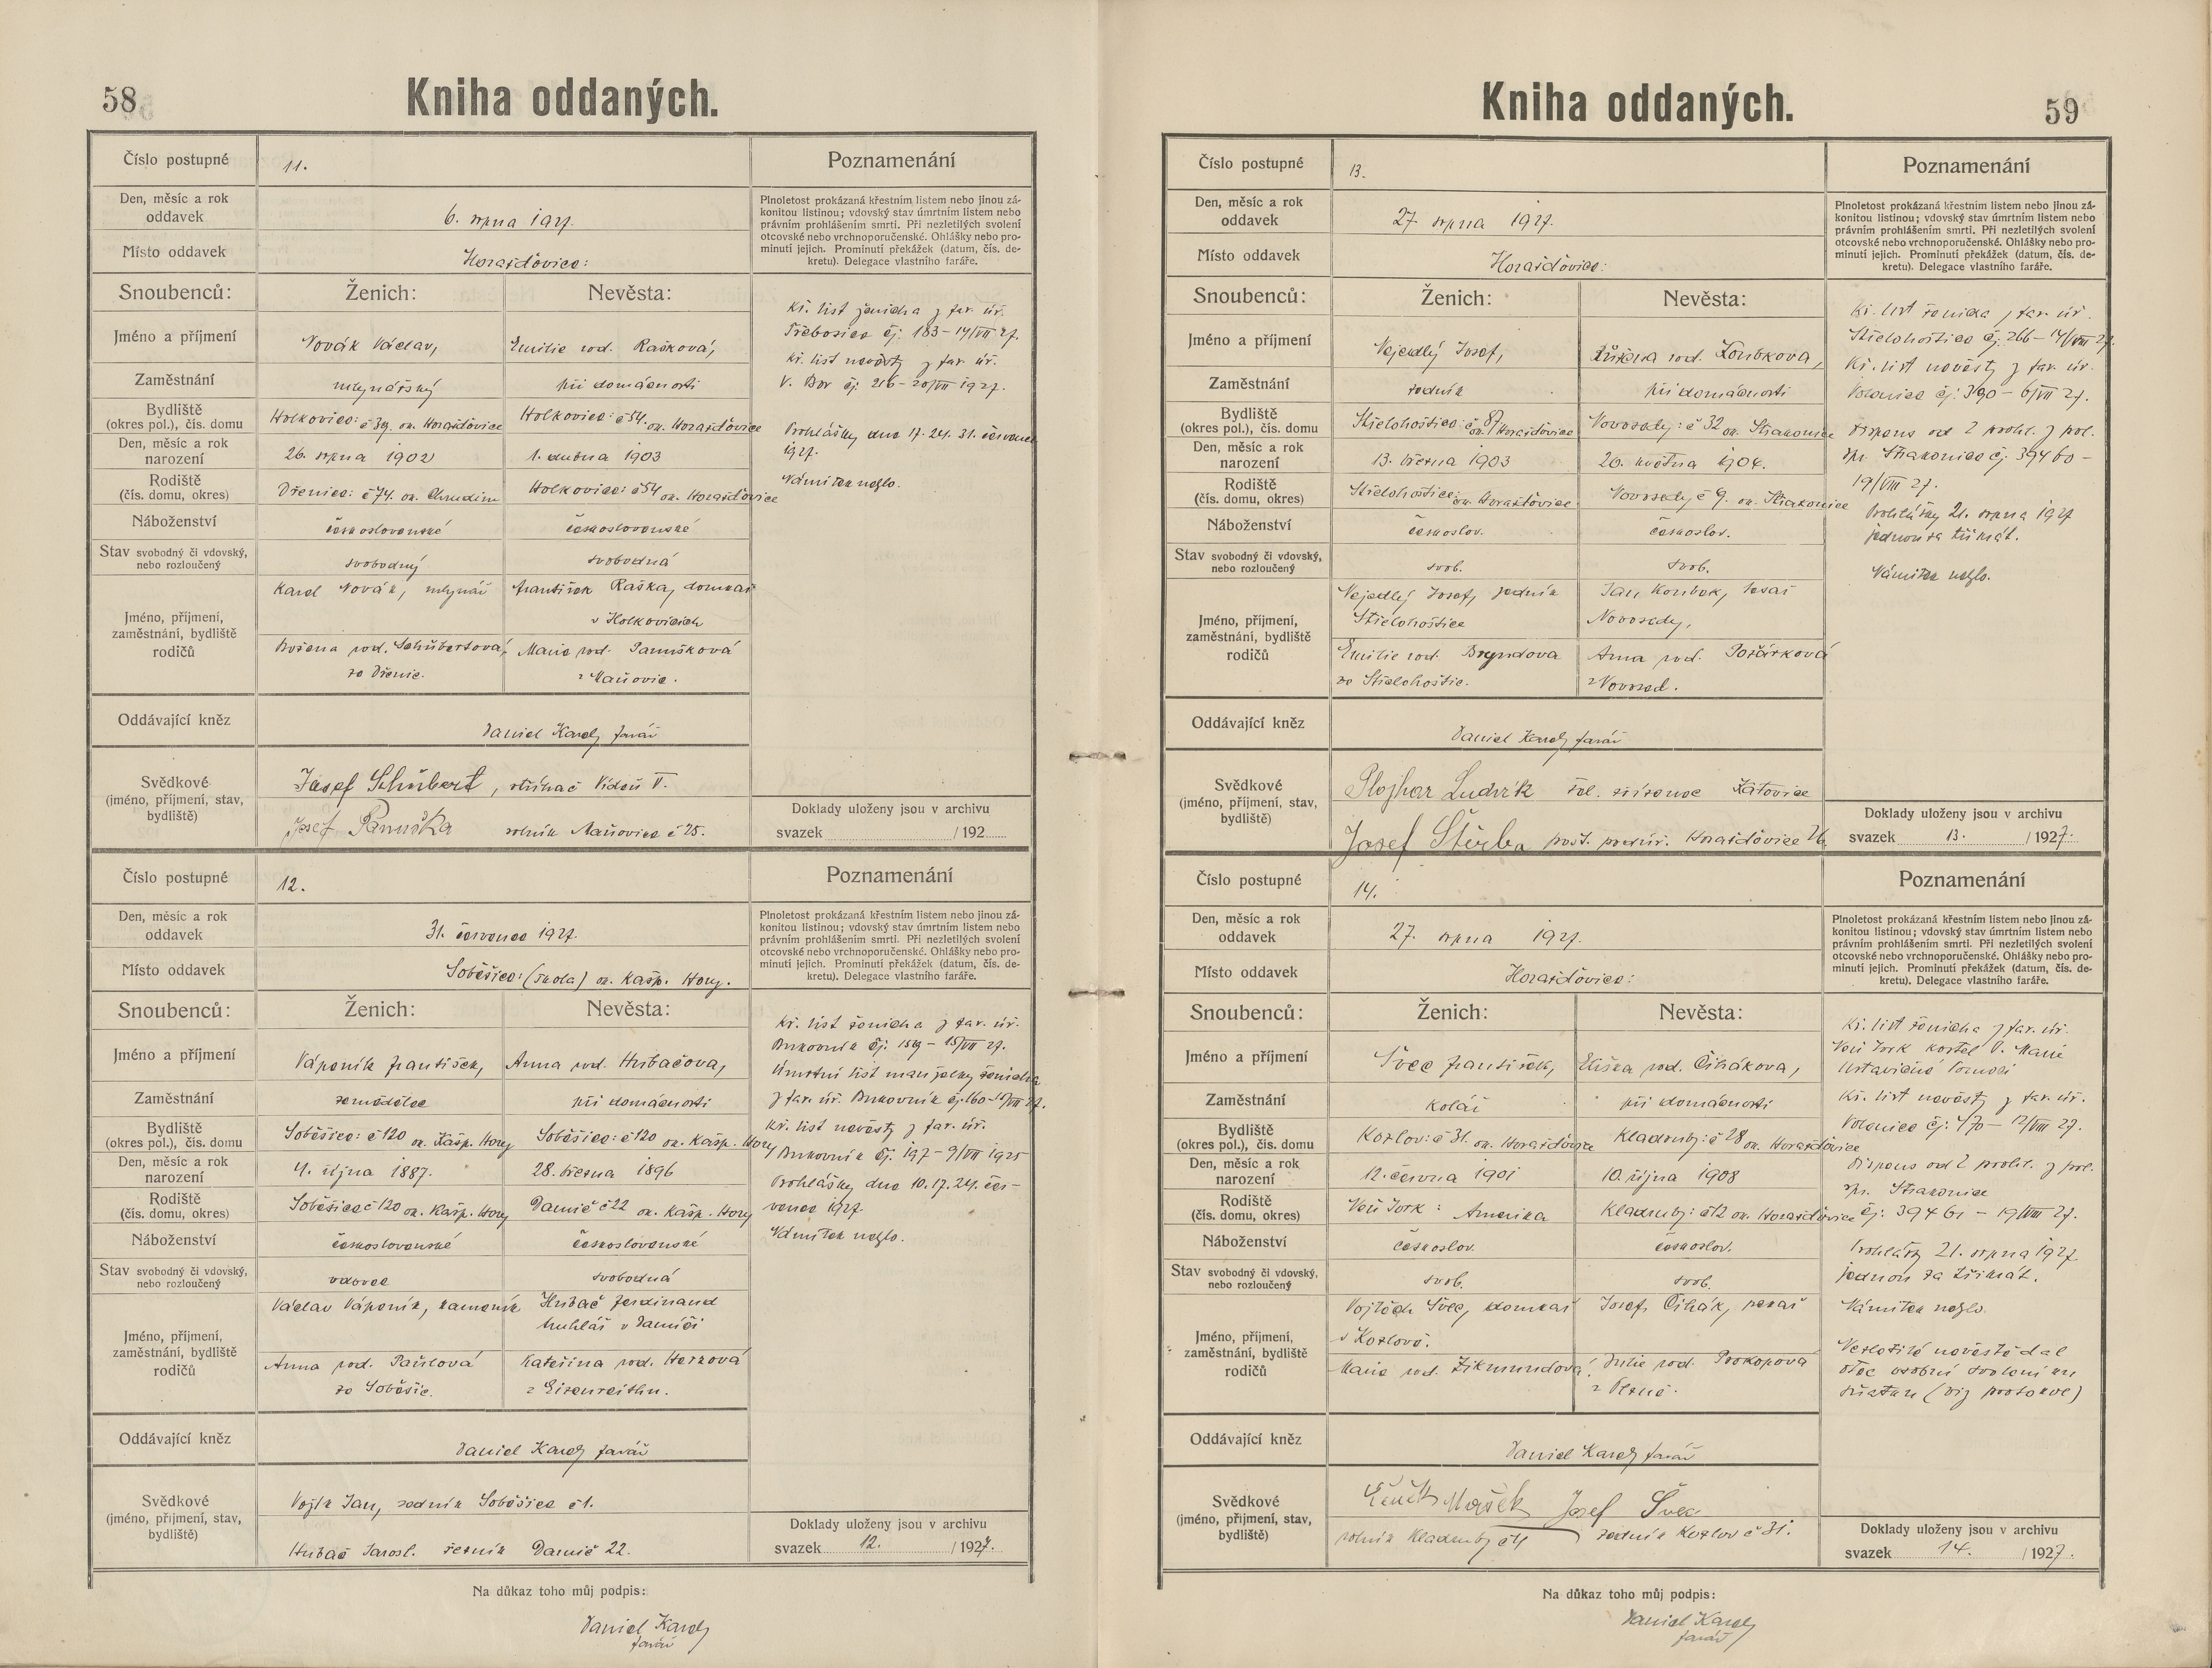 58
Kniha oddaných.
Číslo postupné
11.
Poznamenání
Den, měsíc a rok
oddavek
6. srpna 1927.
Plnoletost prokázaná křestním listem nebo jinou zá-
konitou listinou; vdovský stav úmrtním listem nebo
právním prohlášením smrti. Při nezletilých svolení
otcovské nebo vrchnoporučenské. Ohlášky nebo pro-
minutí jejich. Prominutí překážek (datum, čís. de-
kretu). Delegace vlastního faráře.
Místo oddavek
Horažďovice:
Snoubenců:
Ženich:
Nevěsta:
Jméno a příjmení
Novák Václav,
Emilie rod. Rašková,
Zaměstnání
mlynářský
při domácnosti
Bydliště
(okres pol.), čís. domu
Holkovice: č 39. ok. Horažďovice
Holkovice: č 54. ok. Horažďovice
Den, měsíc a rok
narození
26. srpna 1902
1. dubna 1903
Rodiště
(čís. domu, okres)
Dřenice: č 74. ok. Chrudim
Holkovice: č 54 ok. Horažďovice
Náboženství
československé
československé
Stav svobodný či vdovský,
nebo rozloučený
svobodný
svobodná
Jméno, příjmení,
zaměstnání, bydliště
rodičů
Karel Novák, mlynář
František Raška, domkař
v Holkovicích
Božena rod. Schübertová,
ze Dřenic.
Marie rod. Panušková
z Maňovic.
Kř. list ženicha z far. úř.
Třebosice čj. 183-14/VII 27.
Kř. list nevěsty z far. úř.
V. Bor čj. 216-20/VII 1927.
Prohlášky dne 17. 24. 31. července
1927.
Námitek nešlo.
Oddávající kněz
Daniel Karel, farář
Svědkové
(jméno, příjmení, stav,
bydliště)
Josef Schübert, Vídeň V.
Josef Panuška rolník Maňovice č 25.
Doklady uloženy jsou v archivu
svazek /192
Číslo postupné
12.
Poznamenání
Den, měsíc a rok
oddavek
31. července 1927.
Plnoletost prokázaná křestním listem nebo jinou zá-
konitou listinou; vdovský stav úmrtním listem nebo
právním prohlášením smrti. Při nezletilých svolení
otcovské nebo vrchnoporučenské. Ohlášky nebo pro-
minutí jejich. Prominutí překážek (datum, čís. de-
kretu). Delegace vlastního faráře.
Místo oddavek
Soběšice: (škola) ok. Kašp. Hory.
Snoubenců:
Ženich:
Nevěsta:
Jméno a příjmení
Váponík František,
Anna rod. Hubačova,
Zaměstnání
zemědělec
při domácnosti
Bydliště
(okres pol.), čís. domu
Soběšice: č 120 ok. Kašp. Hory
Soběšice: č 120 ok. Kašp. Hory
Den, měsíc a rok
narození
4. října 1887.
28. března 1896
Rodiště
(čís. domu, okres)
Soběšice č 120 ok. Kašp. Hory
Damič č 22 ok. Kašp. Hory
Náboženství
československé
československé
Stav svobodný či vdovský,
nebo rozloučený
vdovec
svobodná
Jméno, příjmení,
zaměstnání, bydliště
rodičů
Václav Váponík, kameník
Hubač Ferdinand
truhlář v Damíči
Anna rod. Pavlová
ze Soběšic.
Kateřina rod.
z
Kř. list ženicha z far. úř.
Bukovník čj. 159 - 15/VII 27.
Úmrtní list manželky ženicha
z far. úř. Bukovník čj. 160
Kř. list nevěsty z far. úř.
Bukovník čj. 197 - 9/VII 1925
Prohlášky dne 10. 17. 24. čer-
vence 1927.
Námitek nešlo.
Oddávající kněz
Daniel Karel, farář
Svědkové
(jméno, příjmení, stav,
bydliště)
Vojík Jan, zedník Soběšice č 1.
Hubač Jarosl. řezník Damič 22.
Doklady uloženy jsou v archivu
svazek 12. /1927.
Na důkaz toho můj podpis:
Daniel Karel,
farář
Kniha oddaných.
59
Číslo postupné
13.
Poznamenání
Den, měsíc a rok
oddavek
27. srpna 1927.
Plnoletost prokázaná křestním listem nebo jinou zá-
konitou listinou; vdovský stav úmrtním listem nebo
právním prohlášením smrti. Při nezletilých svolení
otcovské nebo vrchnoporučenské. Ohlášky nebo pro-
minutí jejich. Prominutí překážek (datum, čís. de-
kretu). Delegace vlastního faráře.
Místo oddavek
Horažďovice:
Snoubenců:
Ženich:
Nevěsta:
Jméno a příjmení
Nejedlý Josef,
Růžena rod. Koubkova,
Zaměstnání
zedník
při domácnosti
Bydliště
(okres pol.), čís. domu
Střelohoštice: č 87 ok. Horažďovice
Novosedy: č 32 ok. Strakonice
Den, měsíc a rok
narození
13. března 1903
20. května 1904.
Rodiště
(čís. domu, okres)
Střelohoštice: ok. Horažďovice
Novosedy č 9. ok. Strakonice
Náboženství
českoslov.
českoslov.
Stav svobodný či vdovský,
nebo rozloučený
svob.
svob.
Jméno, příjmení,
zaměstnání, bydliště
rodičů
Nejedlý Josef, zedník
Střelohoštice
Jan Koubek, tesař
Novosedy,
Emilie rod. Bryndova
ze Střelohoštic.
Anna rod. Požárková
z Novosed.
Kř. list ženicha z far. úř.
Střelohoštice čj. 266-14/VIII 27.
Kř. list nevěsty z far. úř.
Volenice čj. 390 - 6/VII 27.
Dispens od 2 prohl. z pol.
spr. Strakonice čj. 39460 -
19/VIII 27.
Prohlášky 21. srpna 1927
jednou za třikrát.
Námitek nešlo.
Oddávající kněz
Daniel Karel, farář
Svědkové
(jméno, příjmení, stav,
bydliště)
Plojhar Ludvík žel. zřízenec Katovice
Josef Štěrba pošt. podúř. Horažďovice
Doklady uloženy jsou v archivu
svazek 13. /1927.
Číslo postupné
14.
Poznamenání
Den, měsíc a rok
oddavek
27. srpna 1927.
Plnoletost prokázaná křestním listem nebo jinou zá-
konitou listinou; vdovský stav úmrtním listem nebo
právním prohlášením smrti. Při nezletilých svolení
otcovské nebo vrchnoporučenské. Ohlášky nebo pro-
minutí jejich. Prominutí překážek (datum, čís. de-
kretu). Delegace vlastního faráře.
Místo oddavek
Horažďovice:
Snoubenců:
Ženich:
Nevěsta:
Jméno a příjmení
Švec František,
Eliška rod. Čihákova,
Zaměstnání
kolář
při domácnosti
Bydliště
(okres pol.), čís. domu
Kozlov: č 31. ok. Horažďovice
Kladruby: č 28 ok. Horažďovice
Den, měsíc a rok
narození
12. června 1901
10. října 1908
Rodiště
(čís. domu, okres)
Nev York: Amerika
Kladruby: č 12 ok. Horažďovice
Náboženství
českoslov.
českoslov.
Stav svobodný či vdovský,
nebo rozloučený
svob.
svob.
Jméno, příjmení,
zaměstnání, bydliště
rodičů
Vojtěch Švec, domkař
v Kozlově.
Josef Čihák, pekař
Marie rod. Zikmundová.
Julie rod. Prokopová
z
Kř. list ženicha z far. úř.
Nev York kostel P. Marie
Ustavičné Pomoci
Kř. list nevěsty z far. úř.
Volenice čj. 470 - 12/VIII 27.
Dispens od 2 prohl. z pol.
spr. Strakonice
čj. 39461 - 19/VIII 27.
Prohlášky 21. srpna 1927
jednou za třikrát.
Námitek nešlo.
Nezletilé nevěstě dal
otec osobní svolení ku
sňatku (viz protokol)
Oddávající kněz
Daniel Karel, farář
Svědkové
(jméno, příjmení, stav,
bydliště)
Mašek Josef Švec
rolník Kladruby č 4 zedník Kozlov č 31.
Doklady uloženy jsou v archivu
svazek 14. /1927.
Na důkaz toho můj podpis:
Daniel Karel,
farář